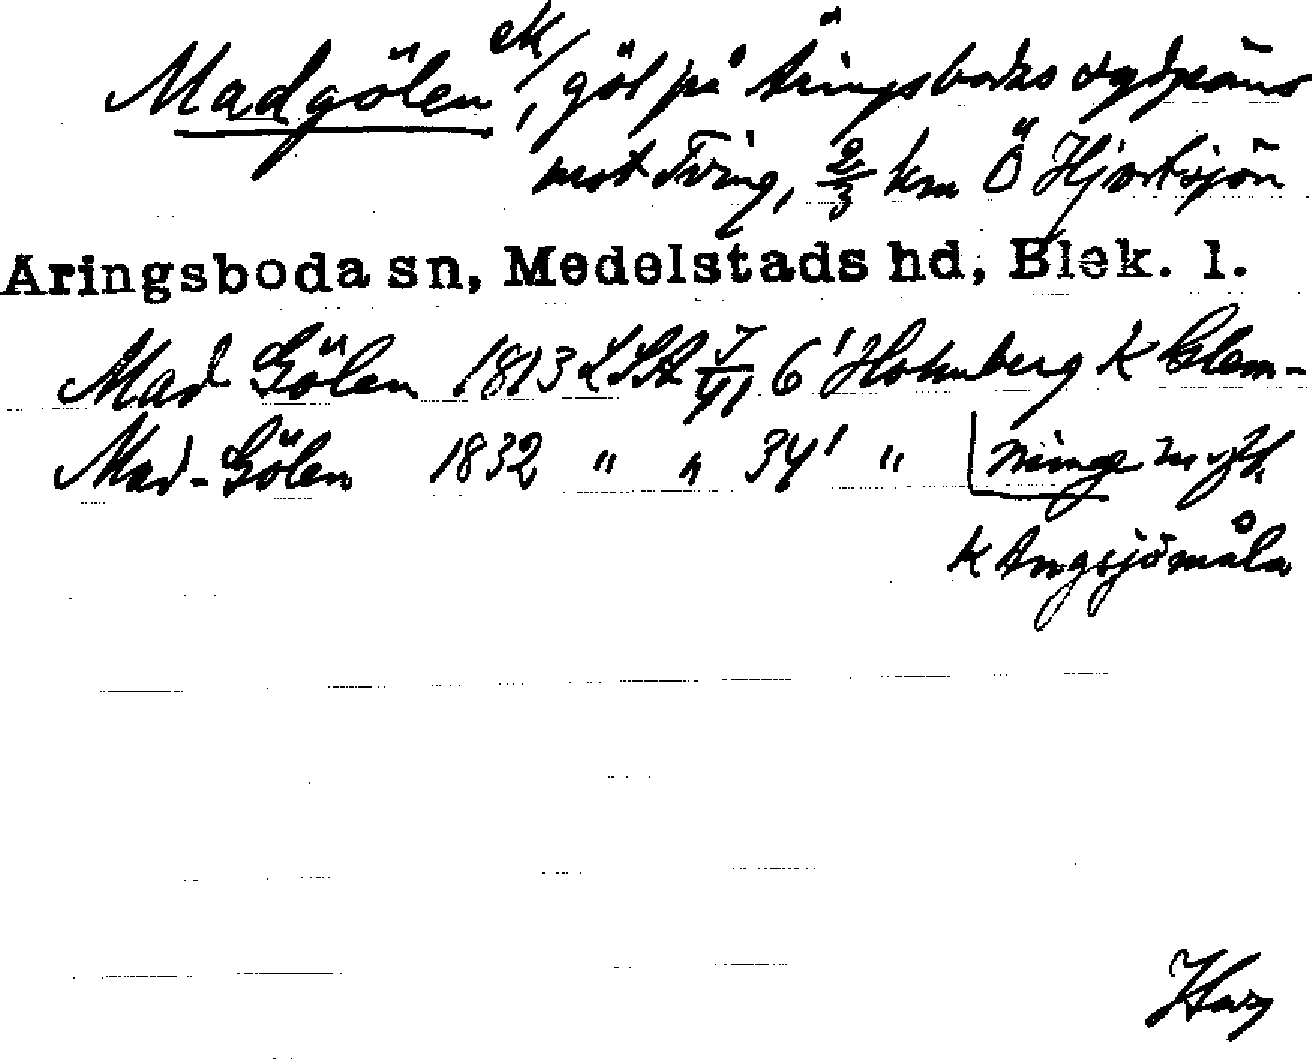 Madgölen ek/, göl på Äringsboda sydgräns
mot Tving, 2/3 km Ö Hjortsjön
Äringsboda sn, Medelstads hd, Blek. l.
Mad Gölen 1813 LSA 6' Holmberg k Glem-
Mad-Gölen 1832 " " 34' " minge
k Angsjömåla